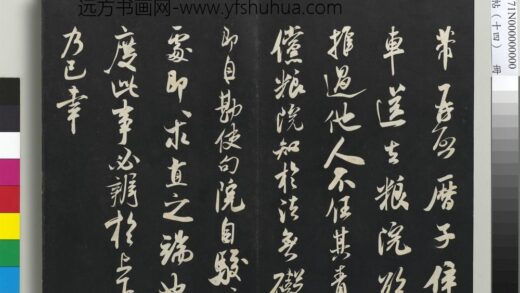 远方书画网-www.yfshuhua.com
暦子
車送去粮院
推過他人不任其責
儻粮院知於法無礙
即自勘使句院自駁
處即求直之端也
度此事必辨於上下
乃已幸
71N0000000000
帖（十四） 册